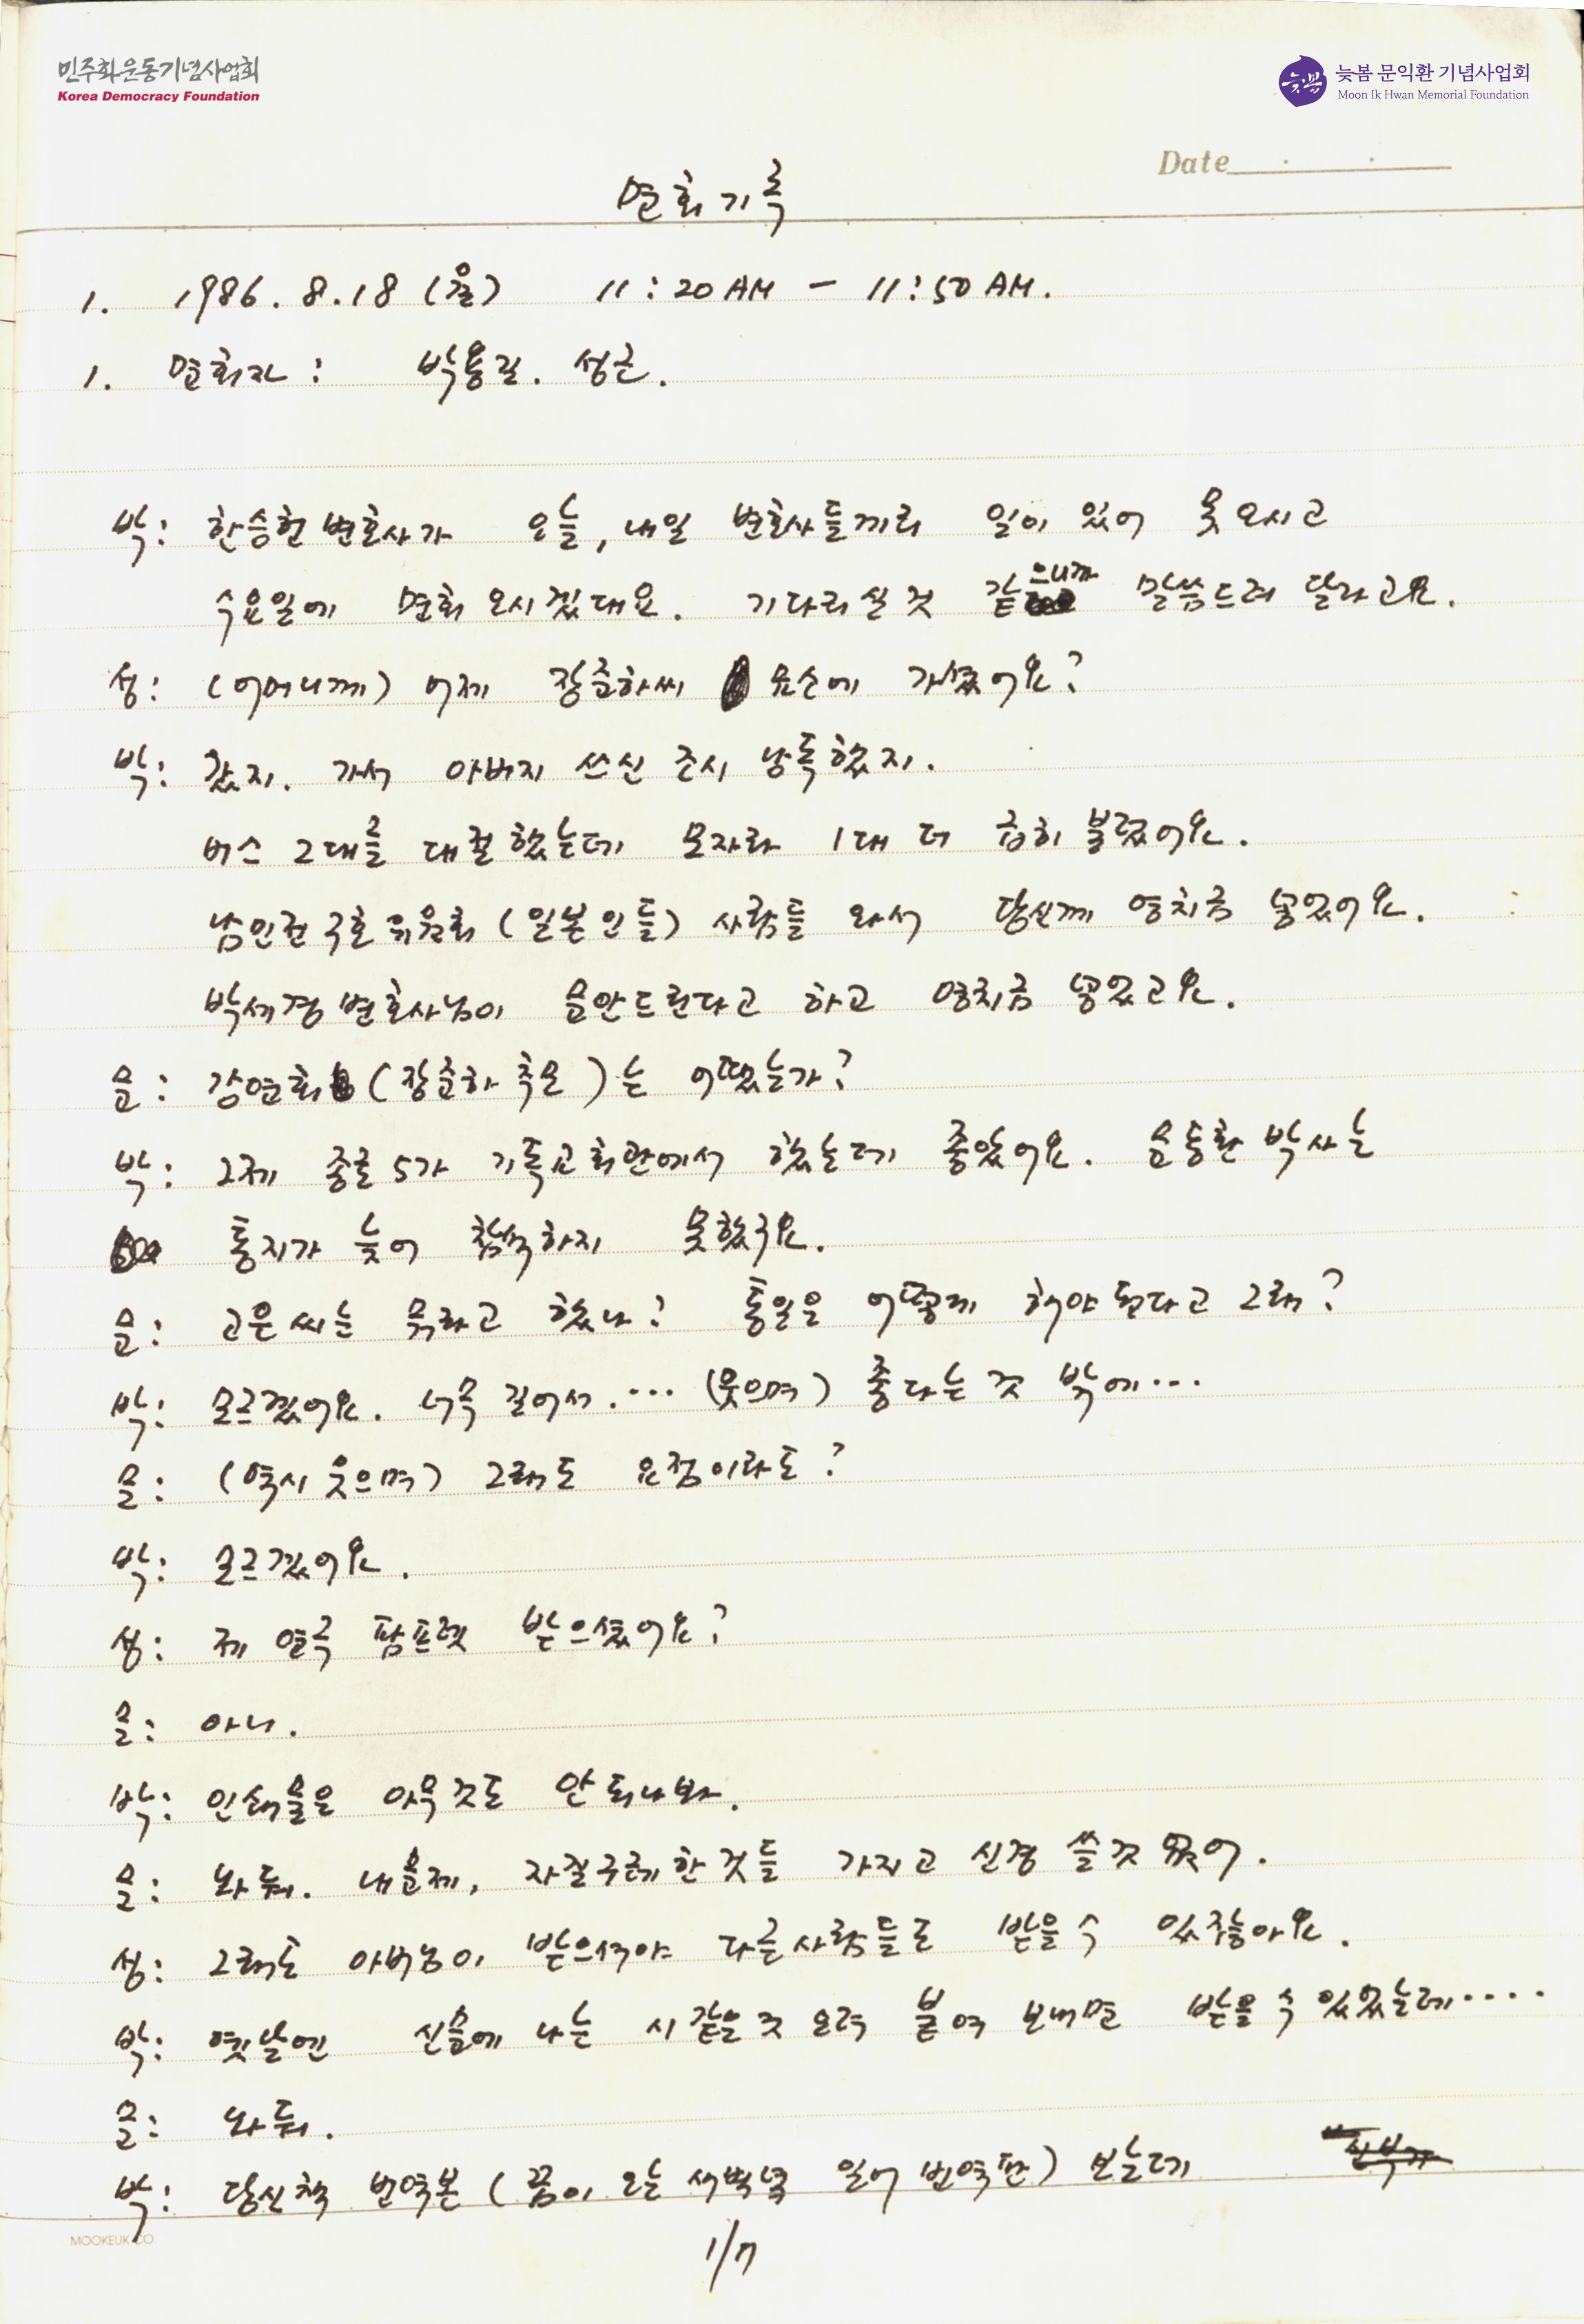 민주화운동기념사업회
Korea Democracy Foundation
늦봄
늦봄 문익환 기념사업회
Moon Ik Hwan Memorial Foundation
Date
면회기록
1. 1986. 8. 18 (월) 11:20 AM - 11:50 AM.
1. 면회자 : 박용길. 성근.
박: 한승헌 변호사가 오늘, 내일 변호사들끼리 일이 있어 못 오시고
수요일에 면회 오시겠대요. 기다리실 것 같으니까 말씀드려 달라고요.
성: (어머니께) 어제 장준하씨 묘소에 가셨어요?
박: 갔지. 가서 아버지 쓰신 조시 낭독했지.
버스 2대를 대절했는데 모자라 1대 더 급히 불렀어요.
남인권 구호위원회 (일본인들) 사람들 와서 당신께 영치금 넣었어요.
박세경 변호사님이 문안드린다고 하고 영치금 넣었고요.
문: 강연회 (장준하 추모) 는 어땠는가?
박: 그제 종로 5가 기독교회관에서 했는데 좋았어요. 문동환 박사는
통지가 늦어 참석하지 못했구요.
문: 고은씨는 뭐라고 했나? 통일은 어떻게 해야 된다고 그래?
박: 모르겠어요. 너무 길어서.… (웃으며) 좋다는 것 밖에…
문: (역시 웃으며) 그래도 요점이라도?
박: 모르겠어요.
성: 제 연극 팜프렛 받으셨어요?
문: 아니.
박: 인쇄물은 아무것도 안되나봐.
문: 놔둬. 내문제, 자질구레한 것들 가지고 신경 쓸것 없어.
성: 그래도 아버님이 받으셔야 다른사람들도 받을 수 있잖아요.
박: 옛날엔 신문에 나는 시 같은 것 오려 붙여 보내면 받을 수 있었는데‥‥
문: 놔둬.
박: 당신책 번역본 (꿈이 오는 새벽녘 일어 번역판) 보는데
1/7
MOOKEUK CO